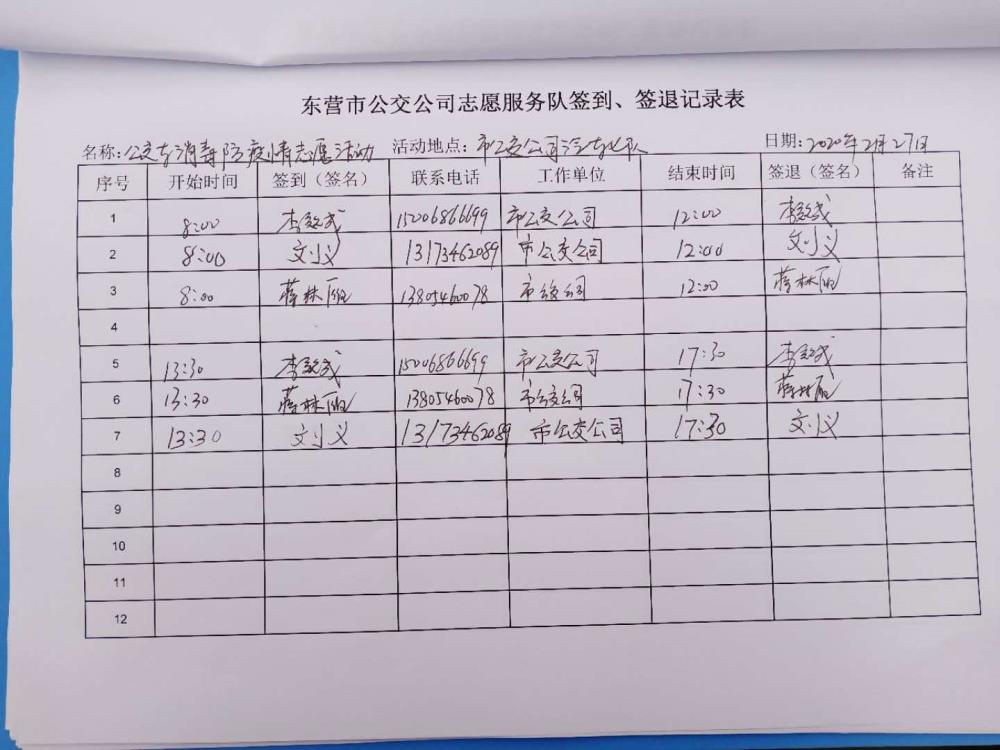 东营市公交公司志愿服务队签到、签退记录表
名称:公交车消毒防疫情志愿活动 活动地点:市公交公司汽车七队 日期:2020年2月27日
序号 开始时间 签到（签名） 联系电话 工作单位 结束时间 签退（签名） 备注
1 8:00 15006866699 市公交公司 12:00
2 8:00 刘义 13173462089 市公交公司 12:00 刘义
3 8:00 蒋林丽 13805460078 市公交公司 12:00 蒋林丽
4
5 13:30 15006866699 市公交公司 17:30
6 13:30 蒋林丽 13805460078 市公交公司 17:30 蒋林丽
7 13:30 刘义 13173462089 市公交公司 17:30 刘义
8
9
10
11
12